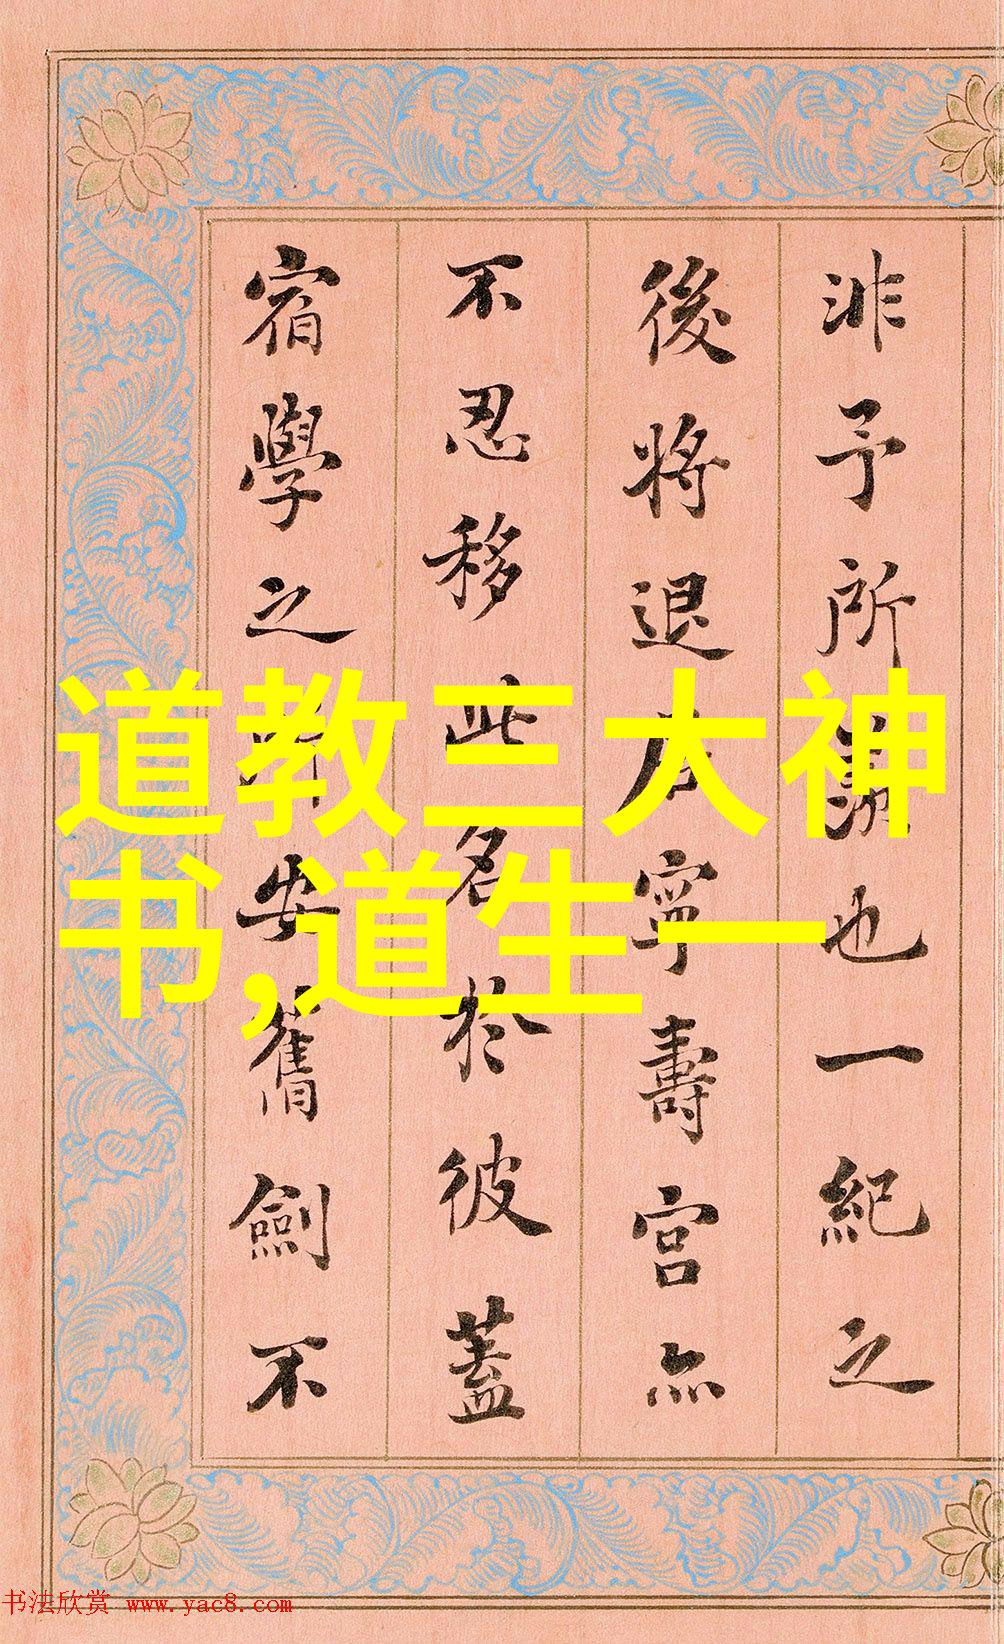 非予所也一紀之
後將退居寧壽宮亦
不忍移此名於彼蓋
宿學之所安舊劍不
道教三大神
书,道生一
书法欣赏 www.yac8.com